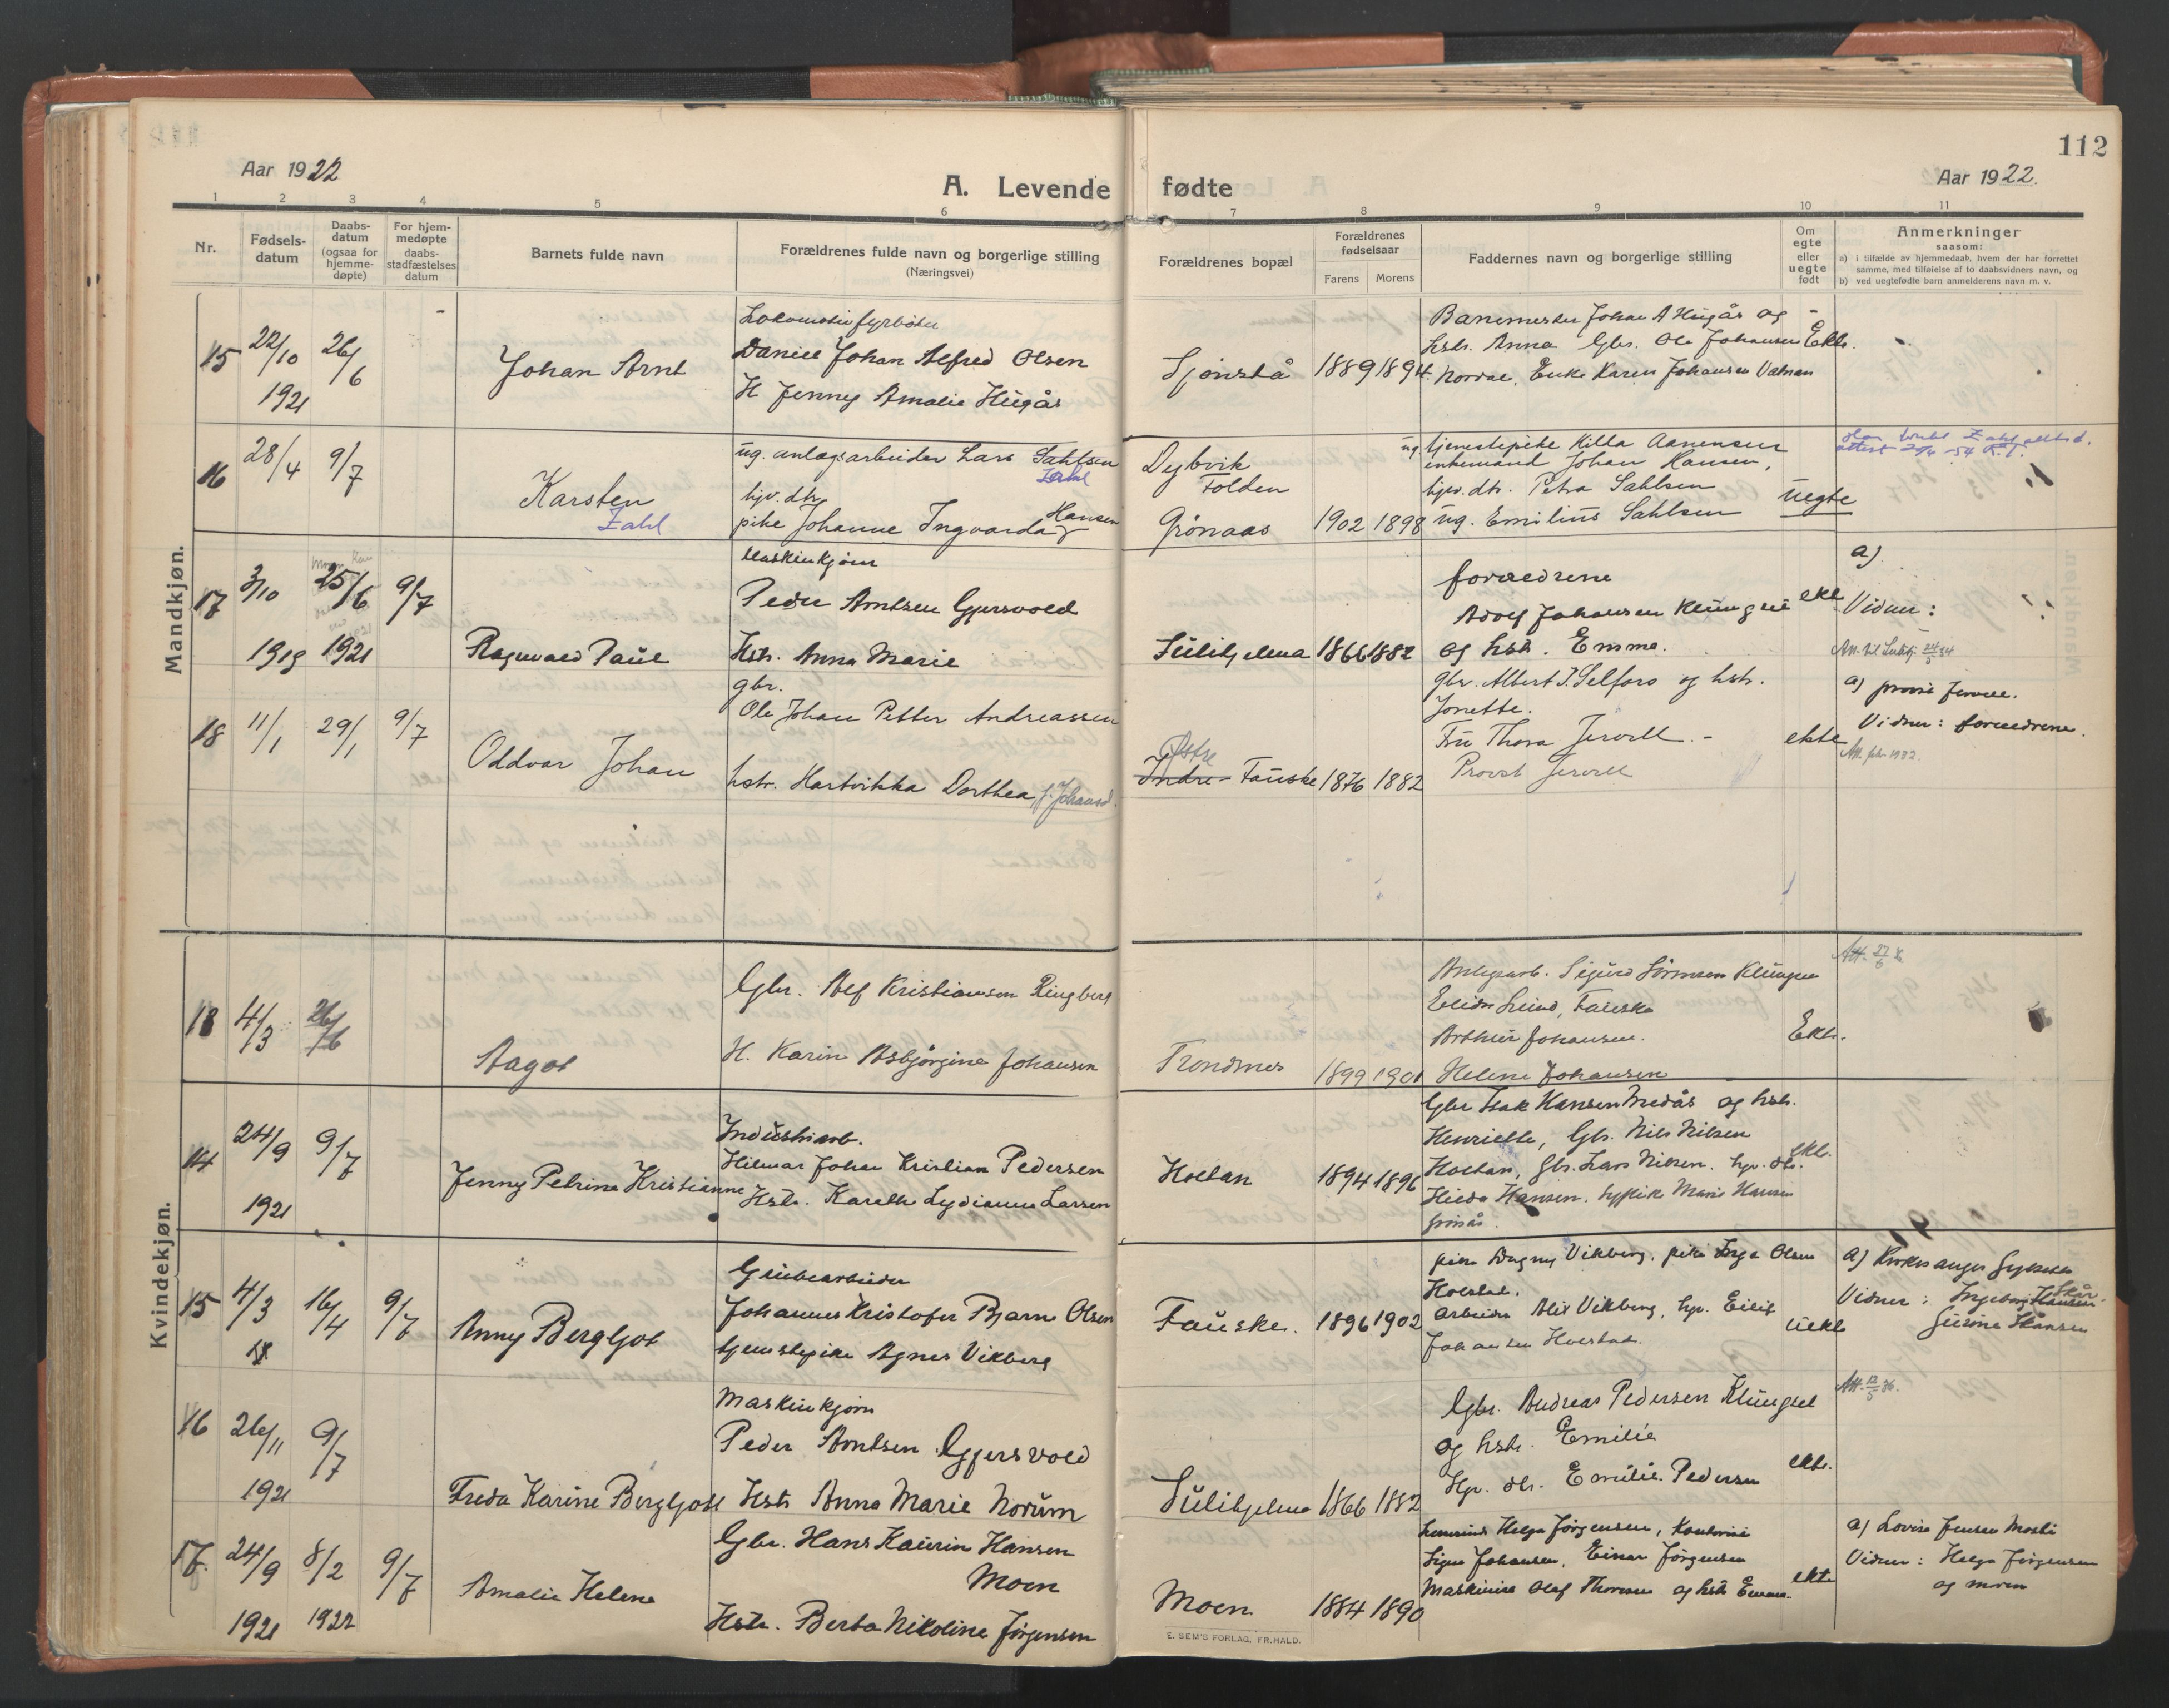 112
Aar 1922
A. Levende fødte
Aar 1922.
1 2 3 4 5 6 7 8 9 10 11
Nr.
Fødsels-
datum
Daabs-
datum
(ogsaa for
hjemme-
døpte)
For hjem-
medøpte
daabs-
stadfæstelses
datum
Barnets fulde navn
Forældrenes fulde navn og borgerlige stilling
(Næringsvei)
Forældrenes bopæl
Forældrenes
fødselsaar
Farens Morens
Faddernes navn og borgerlige stilling
Om
egte
eller
uegte
født
Anmerkninger
saasom:
a) i tilfælde av hjemmedaab, hvem der har forrettet
samme, med tilføielse af to daabsvidners navn, og
b) ved uegtefødte barn anmelderens navn m. v.
Mandkjøn.
15
22/10
1921
26/6
Johan Arnt
Lokomotivfyrbøter
Daniel Johan Alfred Olsen
H Jenny Amalie Hugås
Sjønstå
1889 1894
Banemester Johan A Hugås og
hstr. Anna Gbr. Ole Johansen
Nordal, Enke Karen Johansen Vatnan
Ekte.
16
28/4
9/7
Karsten
Zahl
ug. anlægsarbeider Lars Sahlsen
Zahl
hjv. dtr.
pike Johanne Ingvarda Hansen
Dybvik
Folden
Grønaas
1902 1898
ug tjenestepike Hilla Aanensen
enkemand Johan Hansen,
hjv. dtr. Petra Sahlsen
ug. Emilius Sahlsen
uegte
17
3/10
1919
25/6
1921
9/7
Ragnvald Paul
Maskinkjører
Peder Arntsen Gjersvold
Hstr. Anna Marie
Sulitjelma
1866 1882
forældrene
Adolf Johansen Klungset
og hstr. Emma.
ekte
a)
Vidner:
18
11/1
29/1
9/7
Oddvar Johan
gbr.
Ole Johan Petter Andreassen
hstr. Hartvikka Dorthea, f. Johansd.
Ystre
Indre-Fauske
1876 1882
gbr. Albert J. Selfors og hstr.
Jonette.
Fru Thora Jervell. -
Provst Jervell
ekte
a) provst Jervell.
Vidner: forældrene.
Att. febr. 1932.
Kvindekjøn.
13
4/3
26/6
Aagot
Gbr. Alf Kristiansen Ringberg
H. Karin Asbjørgine Johansen
Trondnes
1899 1901
Anlægsarb. Sigurd Sørensen Klungset
Eilida Lund, Fauske
Arthur Johansen.
Helene Johansen
Ekte.
Att. 27/6
14
24/9
1921
9/7
Jenny Petrine Kristianne
Industriarb.
Hilmar Johan Kristian Pedersen
Hstr. Karethe Lydianna Larsen
Holtan
1894 1896
Gbr Isak Hansen Medås og hstr.
Henriette, Gbr. Nils Nilsen
Holtan, Gbr. Lars Nilsen. hjv. dtr.
Hilda Hansen. Sypike Marie Hansen
ekte.
15
4/3
16/4
9/7
Anny Bergljot
Grubearbeider
Johannes Kristofer Bjarne Olsen
tjenestepike Agnes Vikberg
Fauske.
1896 1902
pike Dagny Vikberg, pike Inga Olsen
Holstad.
Arbeider Alix Vikberg, hjv. Eilif
Johansen Holstad.
uekte
a) Kirkesanger
Vidner: Ingeborg Hansen
16
26/11
1921
9/7
Freda Karine Bergljot
Maskinkjører
Peder Arntsen Gjersvold
Hstr Anna Marie Norum
Sulitjelma
1866 1882
Gbr. Andreas Pedersen Klungset
og hstr. Emilie
Hjv. dtr. Emilie Pedersen
ekte.
Att. 12/5 36.
17.
24/9
1921
8/2
1922
9/7
Amalie Helene
Gbr. Hans Kaurin Hansen
Moen
Hstr. Berta Nikoline Jørgensen
Moen
1884 1890
Helga Jørgensen, Kontorist
Signe Johansen, Einar Jørgensen
Maskinist Olaf Thoresen og hstr Emma.
ekte
a) Lovise Jensen Mosti
Vidner: Helga Jørgensen
og moren
E. SEM'S FORLAG, FR.HALD.